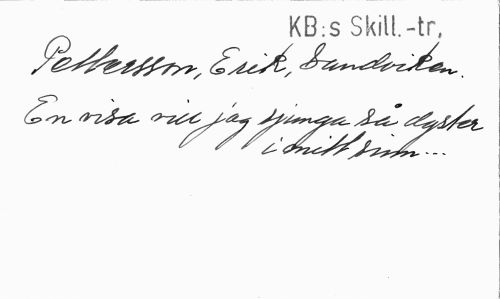 KB:s Skill.-tr,
Pettersson, Erik, Sandviken.
En visa vill jag sjunga så dyster
i mitt sinn...